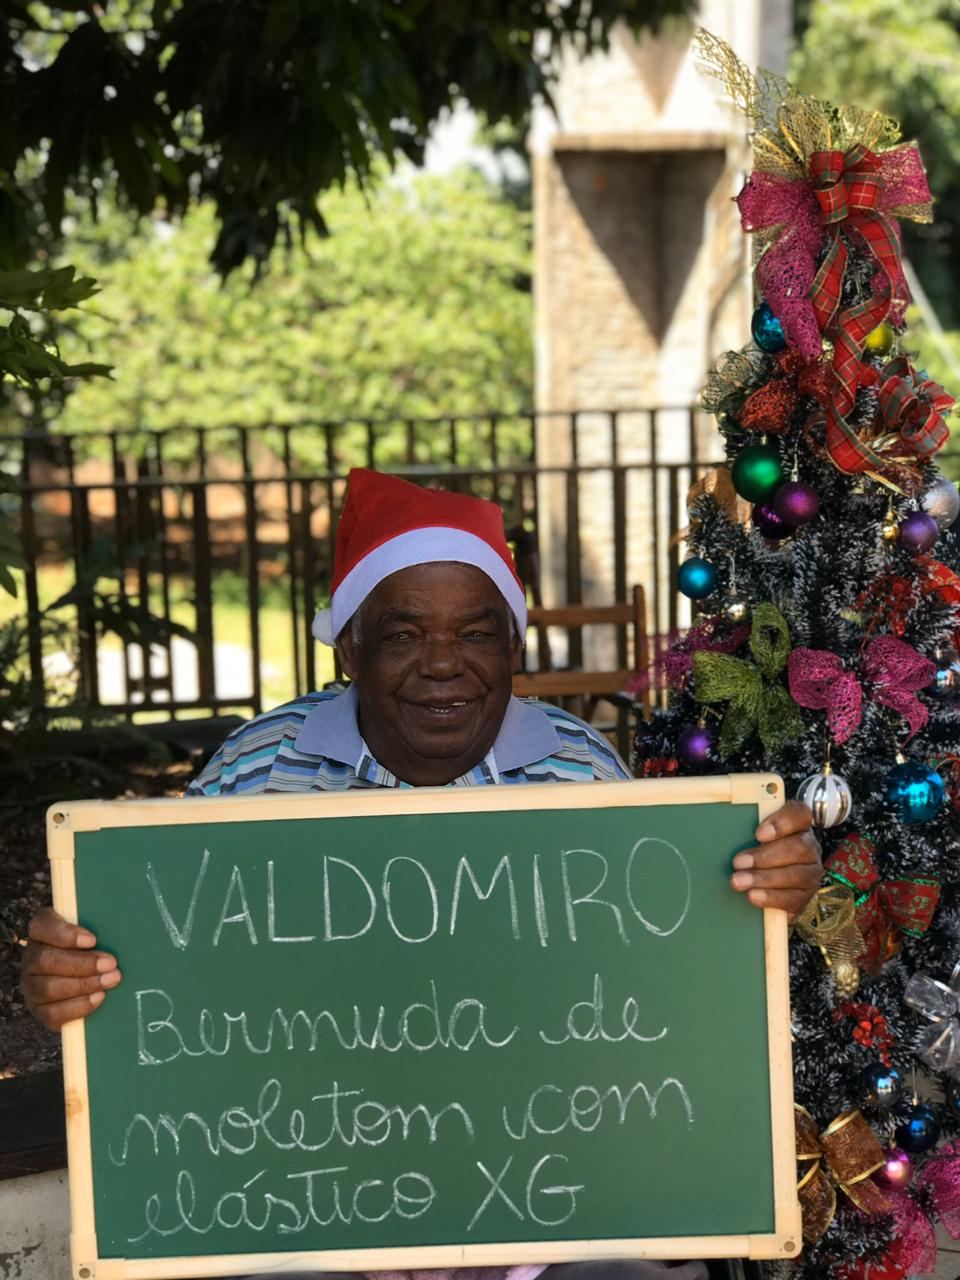 VALDOMIRO
Bermuda de
moletom com
elástico XG